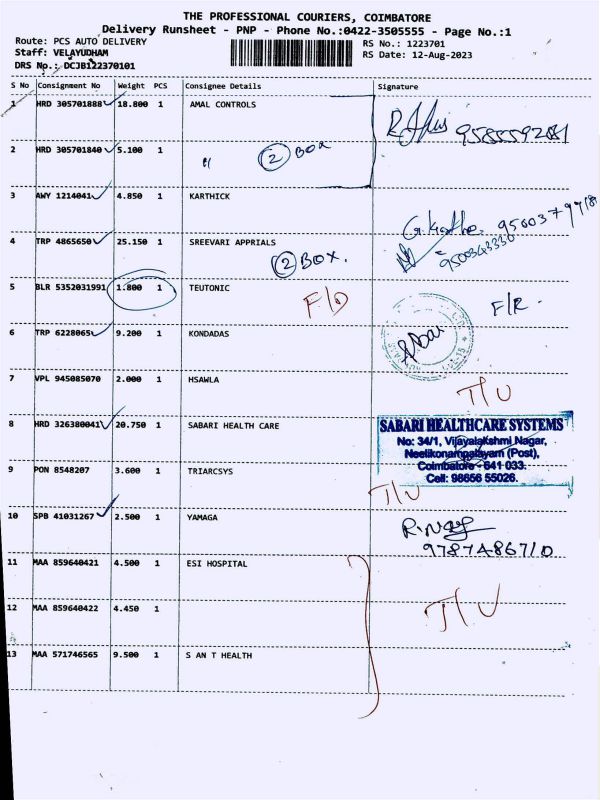 THE PROFESSIONAL COURIERS, COIMBATORE
Delivery Runsheet - PNP - Phone No.:0422-3505555 - Page No.:1
Route: PCS AUTO DELIVERY RS No.: 1223701
Staff: VELAYUDHAM RS Date: 12-Aug-2023
DRS No.: DCJB122370101
S No Consignment No Weight PCS Consignee Details Signature
1 HRD 305701888 18.800 1 AMAL CONTROLS
2 HRD 305701840 5.100 1 " 2 BOX
3 AWY 1214041 4.850 1 KARTHICK
4 TRP 4865650 25.150 1 SREEVARI APPRIALS 9500343330
2 BOX.
5 BLR 5352031991 1.800 1 TEUTONIC F/D F/R -
6 TRP 6228065 9.200 1 KONDADAS
7 VPL 945085070 2.000 1 HSAWLA T/U
8 HRD 326380041 20.750 1 SABARI HEALTH CARE
SABARI HEALTHCARE SYSTEMS
No: 34/1, Vijayalakshmi Nagar,
Neelikonampalayam (Post),
Coimbatore - 641 033.
Cell: 98656 55026.
9 PON 8548207 3.600 1 TRIARCSYS T/U
10 SPB 41031267 2.500 1 YAMAGA
9787486710
11 MAA 859640421 4.500 1 ESI HOSPITAL
12 MAA 859640422 4.450 1 T/U
13 MAA 571746565 9.500 1 S AN T HEALTH